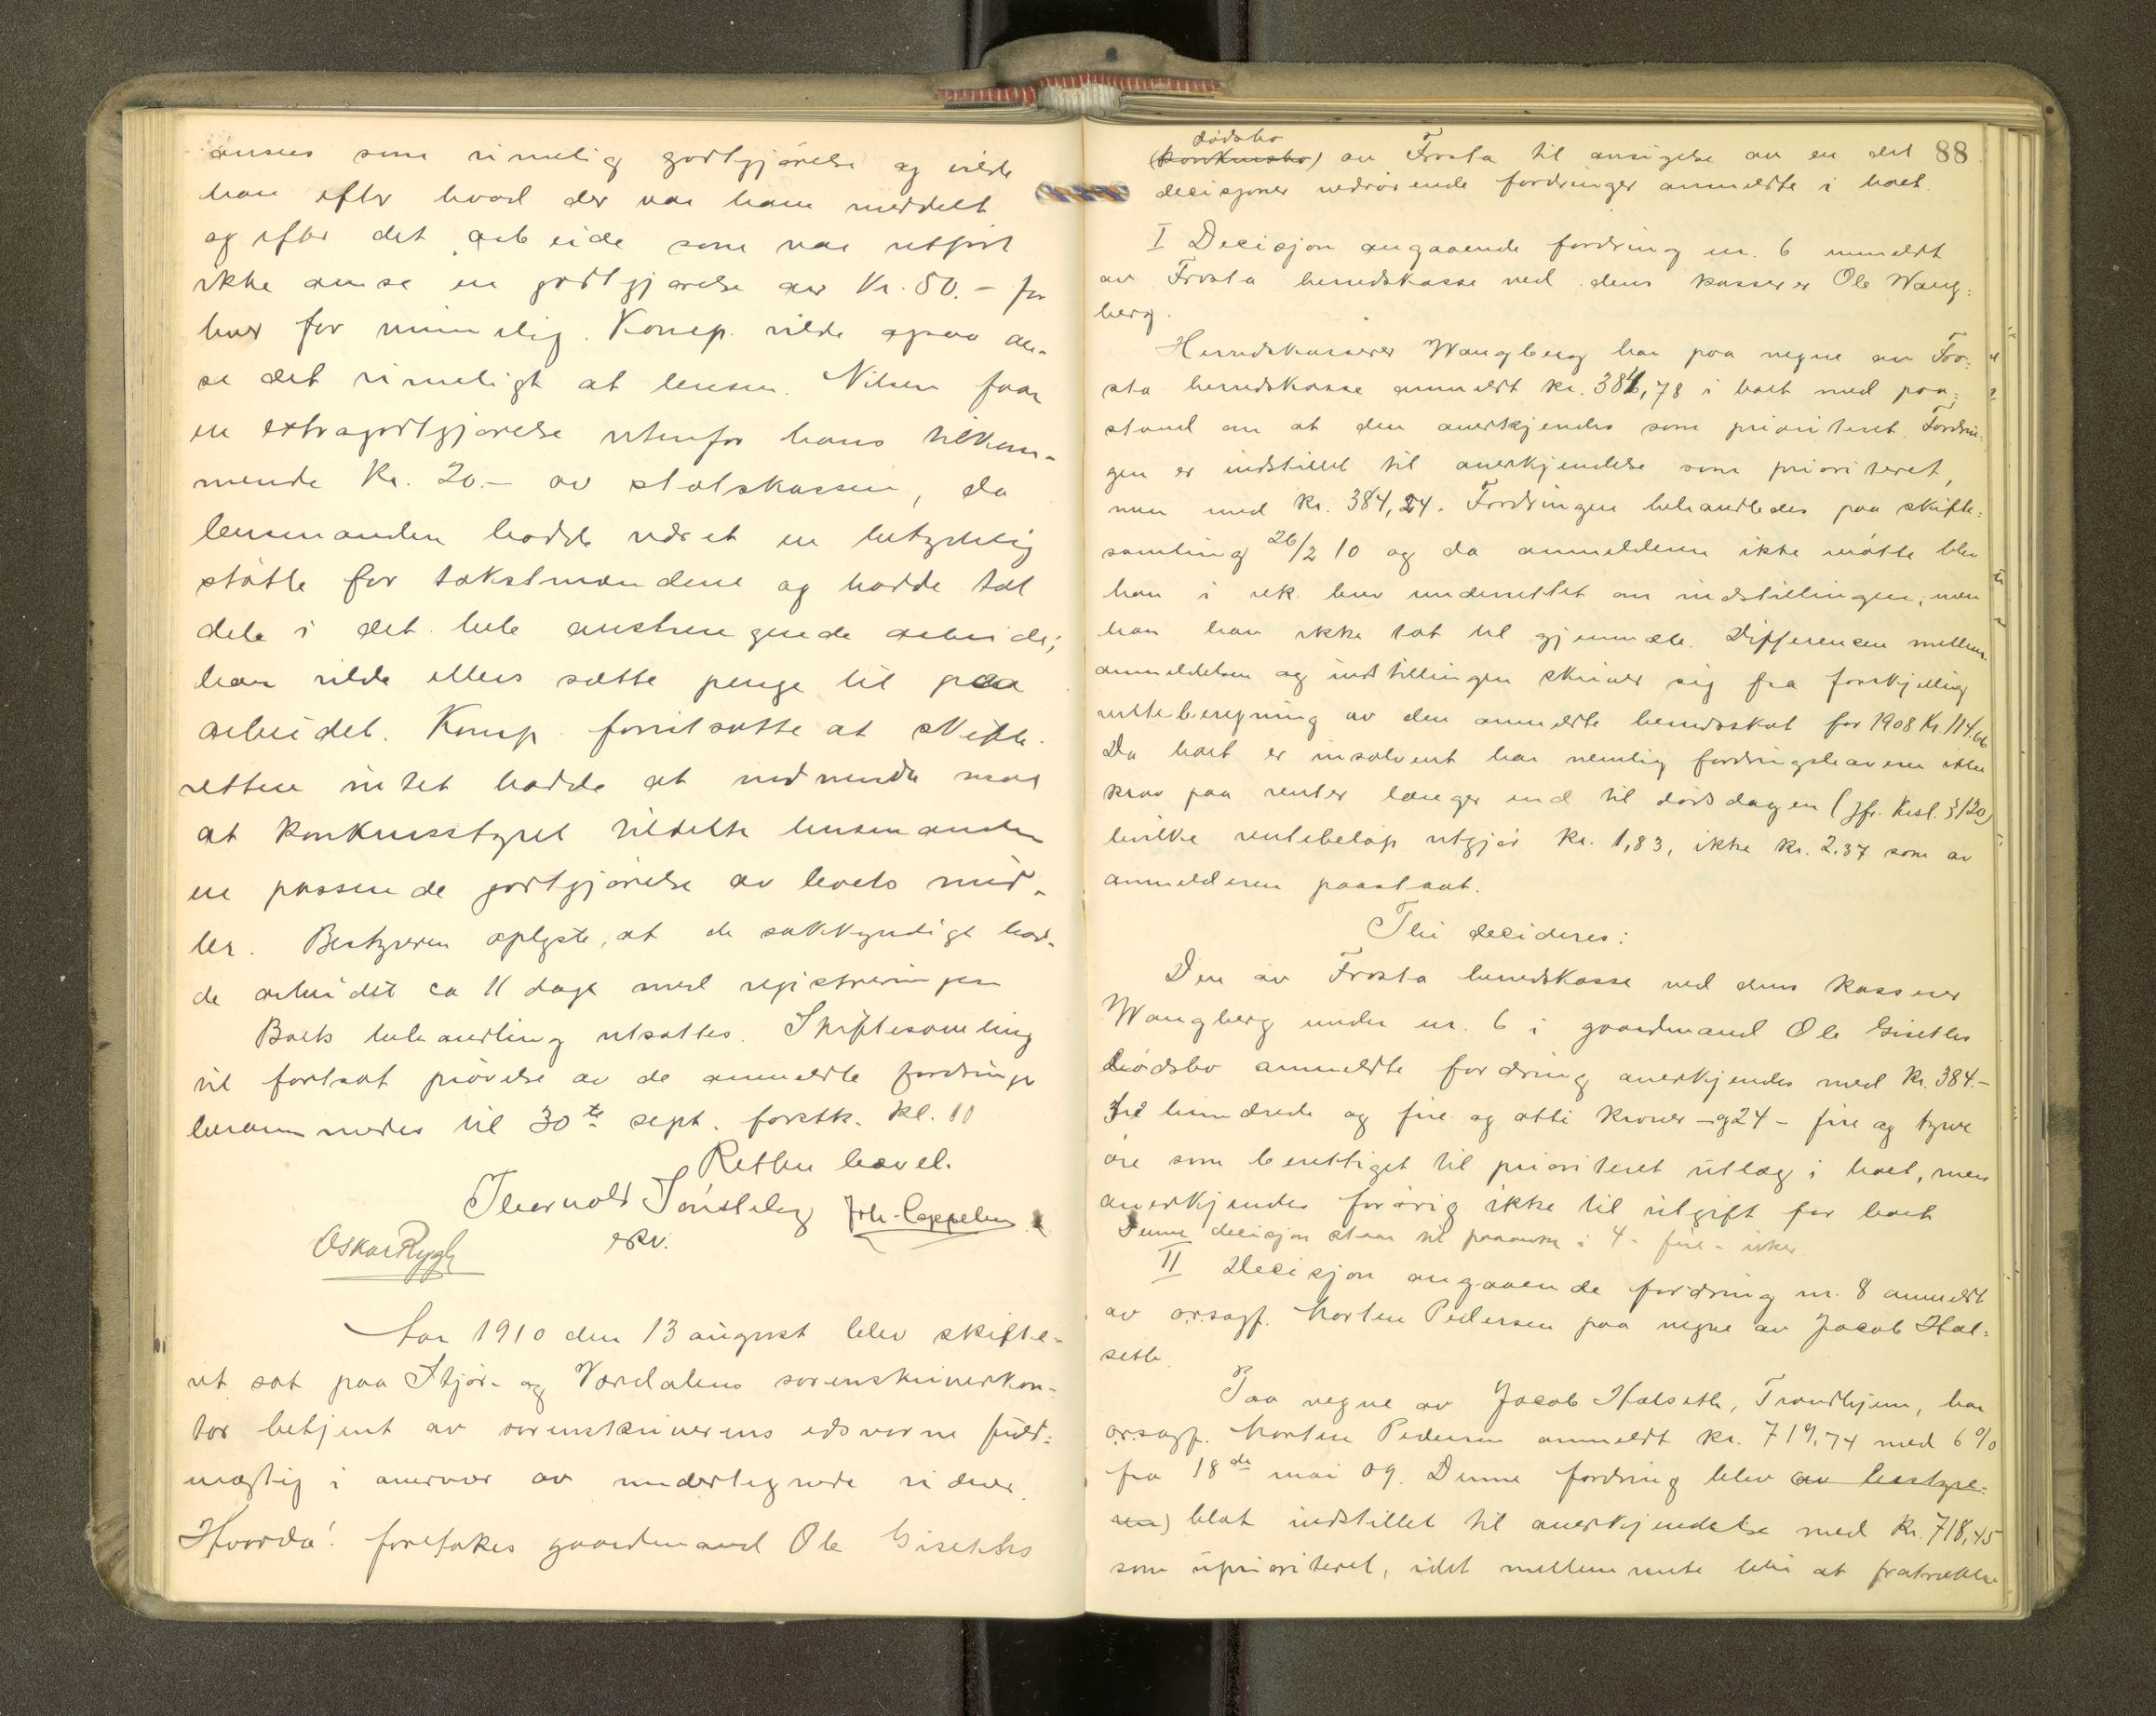 anses som rimelig godtgjørelse og vilde
han efter hvad der var ham meddelt
og efter det arbeide som var utført
ikke anse en godtgjørelse av Kr. 50.- for
hver for urimelig. Komp. vilde ogsaa an-
se det rimeligt at lensm. Nilsen faar
en extragodtgjørelse utenfor hans tilkom-
mende Kr. 20.- av statskassen, da
lensmanden hadde været en betydelig
støtte for takstmændene og hadde tat
del i det hele anstrengende arbeide;
han vilde ellers sætte penge til paa
arbeidet. Komp. forutsatte at skifte-
retten intet hadde at indvende mot
at konkursstyret tildelte lensmanden
en passende godtgjørelse av boets mid-
ler. Bestyreren oplyste, at de sakkyndige had-
de arbeidet ca 11 dage med registreringen
Boets behandling utsattes. Skiftesamling
til fortsat prøvelse av de anmeldte fordringer
berammedes til 30te sept. førstk. kl. 11
Retten hævet.
Thorvald Joh. Cappelen
Oskar Rygh eskv.
Aar 1910 den 13 august blev skifte-
ret sat paa Stjør- og Værdalens sorenskriverkon-
tor betjent av sorenskriverens edsvorne fuld-
mægtig i anervær av undertegnede vidner.
Hvorda! foretokes gaardmand Ole Giseths
dødsbo 88
(konkursbo) av Frosta til avsigelse av en del
decisjoner vedrørende fordringer anmeldte i boet.
I Decisjon angaaende fordring nr. 6 anmeldt
av Frosta herredskasse ved dens kasserer Ole Wang-
berg.
Herredskasserer Wangberg har paa vegne av Fro-
sta herredskasse anmeldt kr. 384,78 i boet med paa-
stand om at den anerkjendes som prioriteret. Fordrin-
gen er indstillet til anerkjendelse som prioriteret,
men med kr. 384,24. Fordringen behandledes paa skifte-
samling 26/2 10 og da anmelderen ikke møtte blev
han i rek. brev underrettet om indstillingen, men
han har ikke tat til gjenmæle. Differencen mellem
anmeldelsen og indstillingen skriver sig fra forskjellig
renteberegning av den anmeldte herredsskat for 1908 Kr. 114,66
Da boet er insolvent har nemlig fordringshaveren ikke
krav paa renter længer end til dødsdagen (jfr. Krsl. §120)
hvilke rentebeløp utgjør kr. 1,83, ikke kr. 2.37 som av
anmelderen paastaat.
Thi decideres:
Den av Frosta herredskasse ved dens kasserer
Wangberg under nr. 6 i gaardmand Ole Giseths
dødsbo anmeldte fordring anerkjendes med kr. 384.-
tre hundrede og fire og otti kroner - og 24 - fire og tyve
øre som berettiget til prioriteret utlæg i boet, men
anerkjendes forøvrig ikke til utgift for boet
Denne decisjon staar til paaanke i 4- fire- uker.
II Decisjon angaaende fordring nr. 8 anmeldt
av o.r.sagf. Morten Pedersen paa vegne av Jacob Hal-
seth.
Paa vegne av Jacob Halseth, Trondhjem, har
o.r.sagf. Morten Pedersen anmeldt kr. 719,74 med 6%
fra 18de mai 09. Denne fordring blev (av bestyre-
ren) blot indstillet til anerkjendelse med kr. 718,45
som uprioriteret, idet mellemrente blir at fratrække